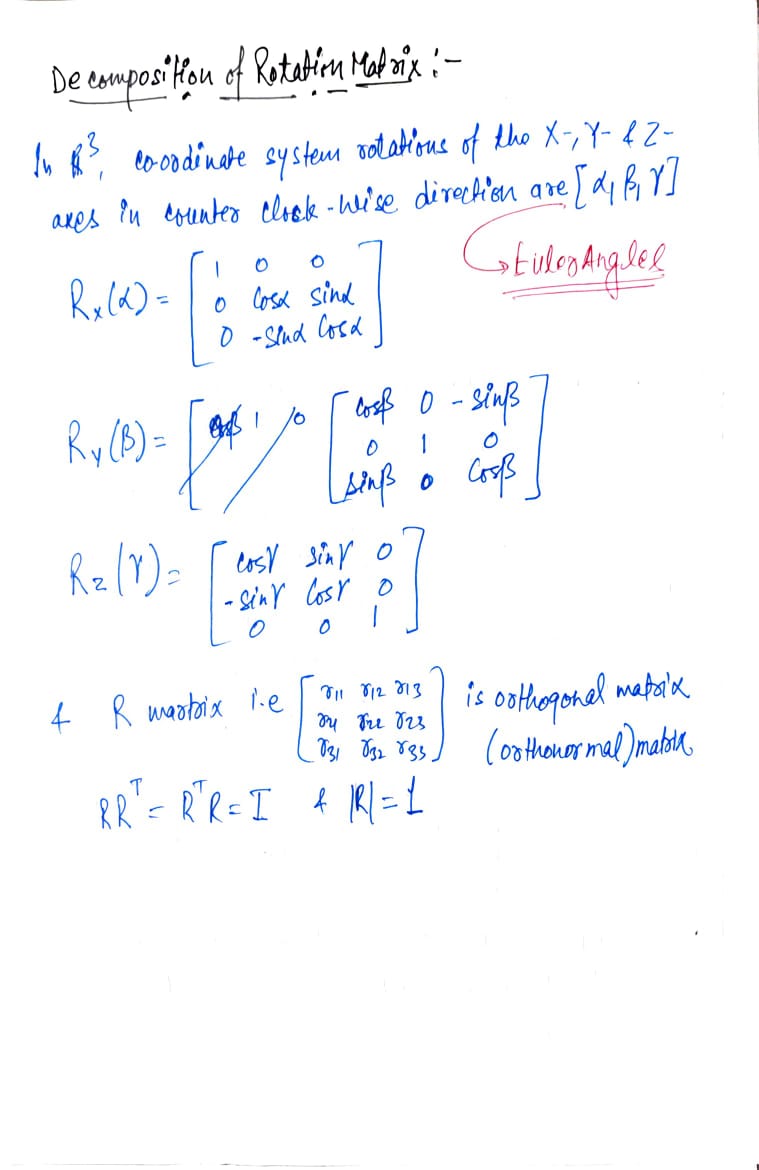 Decomposition of Rotation Matrix :-
In R³, co-ordinate system rotations of the X-, Y- & Z-
axes in counter clock-wise direction are [α, β, γ]
→ Euler Angles
Rx(α) = [ 1 0 0
0 cosα sinα
0 -sinα cosα ]
Ry(β) = [ cosβ 0 -sinβ
0 1 0
sinβ 0 cosβ ]
Rz(γ) = [ cosγ sinγ 0
-sinγ cosγ 0
0 0 1 ]
& R maatrix i.e [ r11 r12 r13
r21 r22 r23
r31 r32 r33 ] is orthogonal matrix
(orthonormal) matrix
RRᵀ = RᵀR = I & |R| = 1